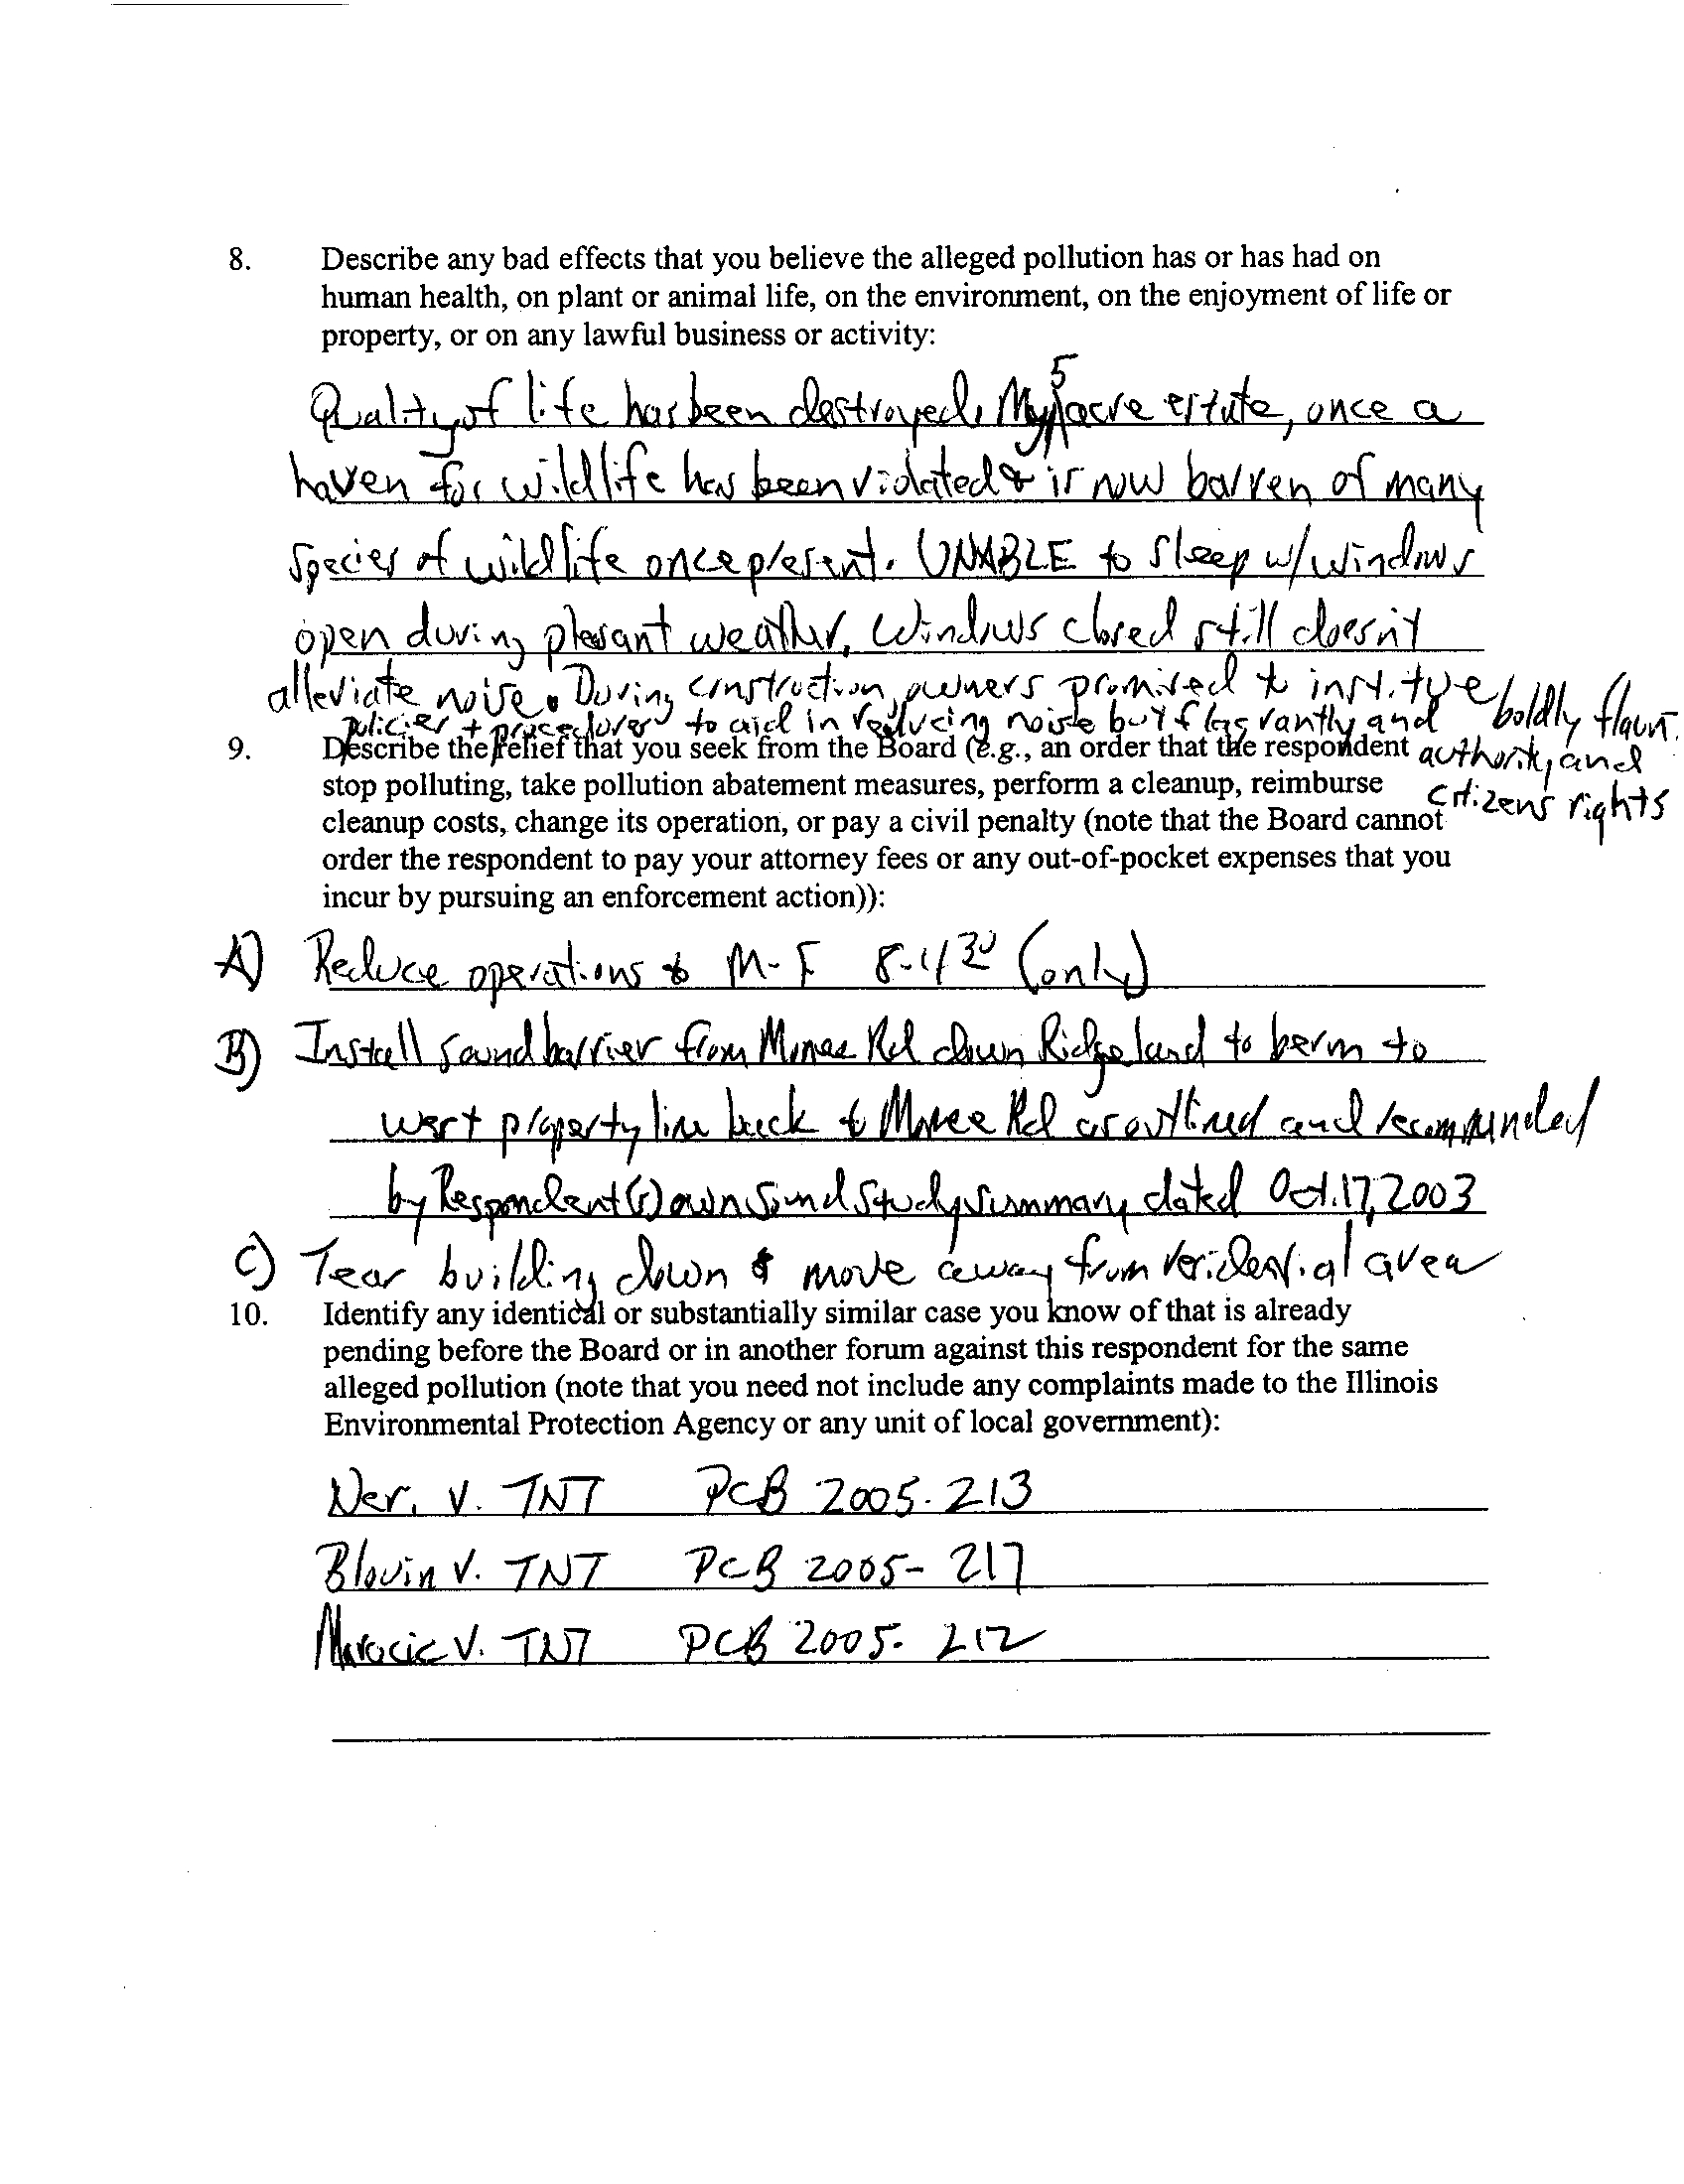 8. Describe any bad effects that you believe the alleged pollution has or has had on
human health, on plant or animal life, on the environment, on the enjoyment of life or
property, or on any lawful business or activity:
Quality of life has been destroyed. My 5 acre estate, once a
haven for wildlife has been violated & is now barren of many
species of wildlife once present. UNABLE to sleep w/windows
open during pleasant weather. Windows closed still doesn't
alleviate noise. During construction, owners promised to institute
policies + procedures to aid in reducing noise but flagrantly and boldly flaunt
authority and
citizens rights
9. Describe the relief that you seek from the Board (e.g., an order that the respondent
stop polluting, take pollution abatement measures, perform a cleanup, reimburse
cleanup costs, change its operation, or pay a civil penalty (note that the Board cannot
order the respondent to pay your attorney fees or any out-of-pocket expenses that you
incur by pursuing an enforcement action)):
A) Reduce operations to M-F 8-430 (only)
B) Install sound barrier from Monee Rd down Ridgeland to berm to
west property line back to Monee Rd as outlined and recommended
by Respondent(s) own Sound Study summary dated Oct. 17, 2003
C) Tear building down & move away from residential area
10. Identify any identical or substantially similar case you know of that is already
pending before the Board or in another forum against this respondent for the same
alleged pollution (note that you need not include any complaints made to the Illinois
Environmental Protection Agency or any unit of local government):
v. TNT PCB 2005-213
v. TNT PCB 2005-217
v. TNT PCB 2005-212